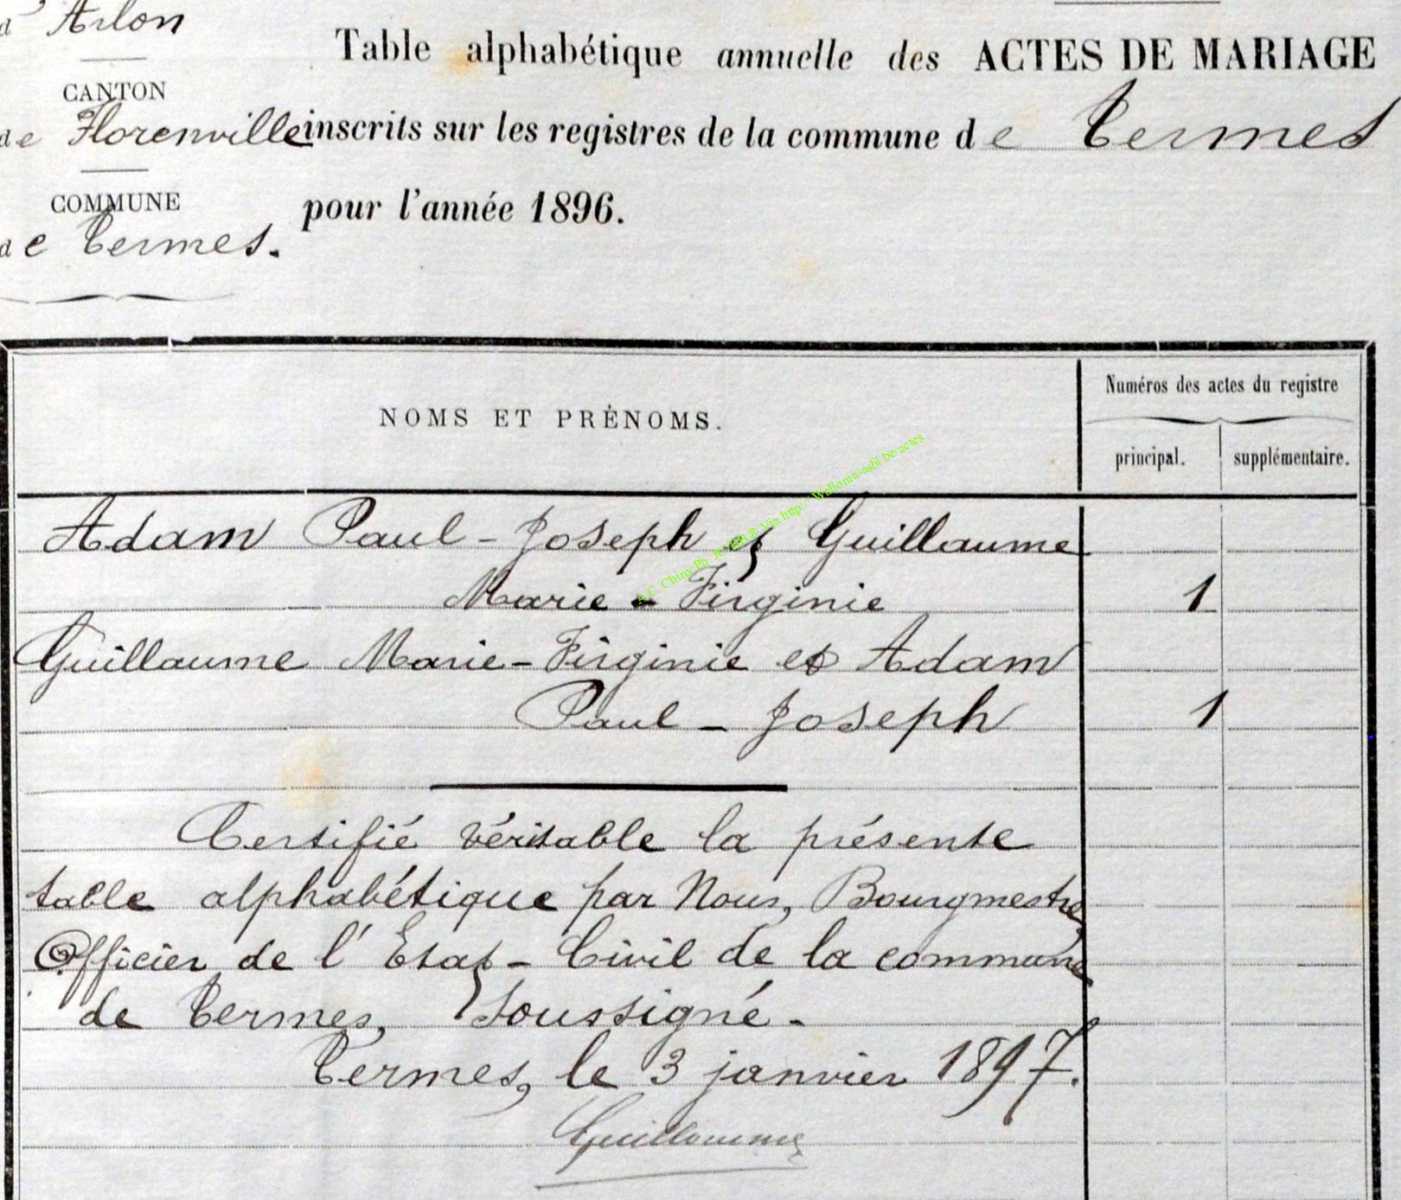 d'Arlon
Table alphabétique annuelle des ACTES DE MARIAGE
CANTON
de Florenville
inscrits sur les registres de la commune de Termes
COMMUNE
de Termes.
pour l'année 1896.
NOMS ET PRÉNOMS.
Numéros des actes du registre
principal.
supplémentaire.
Adam Paul-Joseph et Guillaume
Marie-Virginie 1
Guillaume Marie-Virginie et Adam
Paul-Joseph 1
Certifié véritable la présente
table alphabétique par Nous, Bourgmestre,
Officier de l'Etat-Civil de la commune
de Termes, soussigné.
Termes, le 3 janvier 1897.
Guillaume